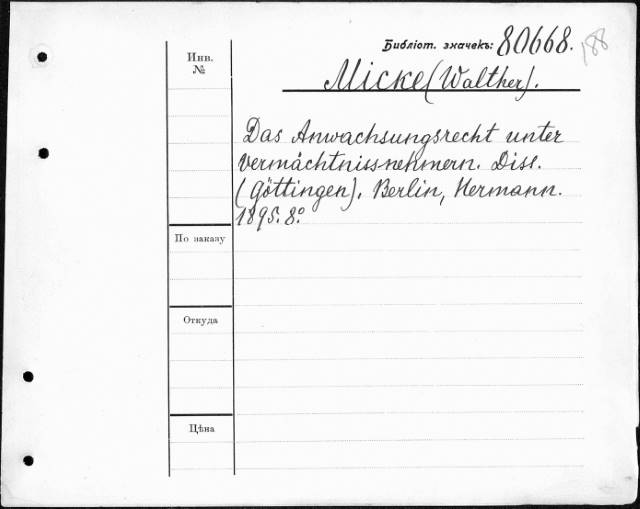 Библіот. значекъ: 80668.
188
Инв.
№
Micke (Walther).
Das Anwachsungsrecht unter
Vermächtnissnehmern. Diss.
(Göttingen). Berlin, Hermann.
1895. 8º
По заказу
Откуда
Цѣна